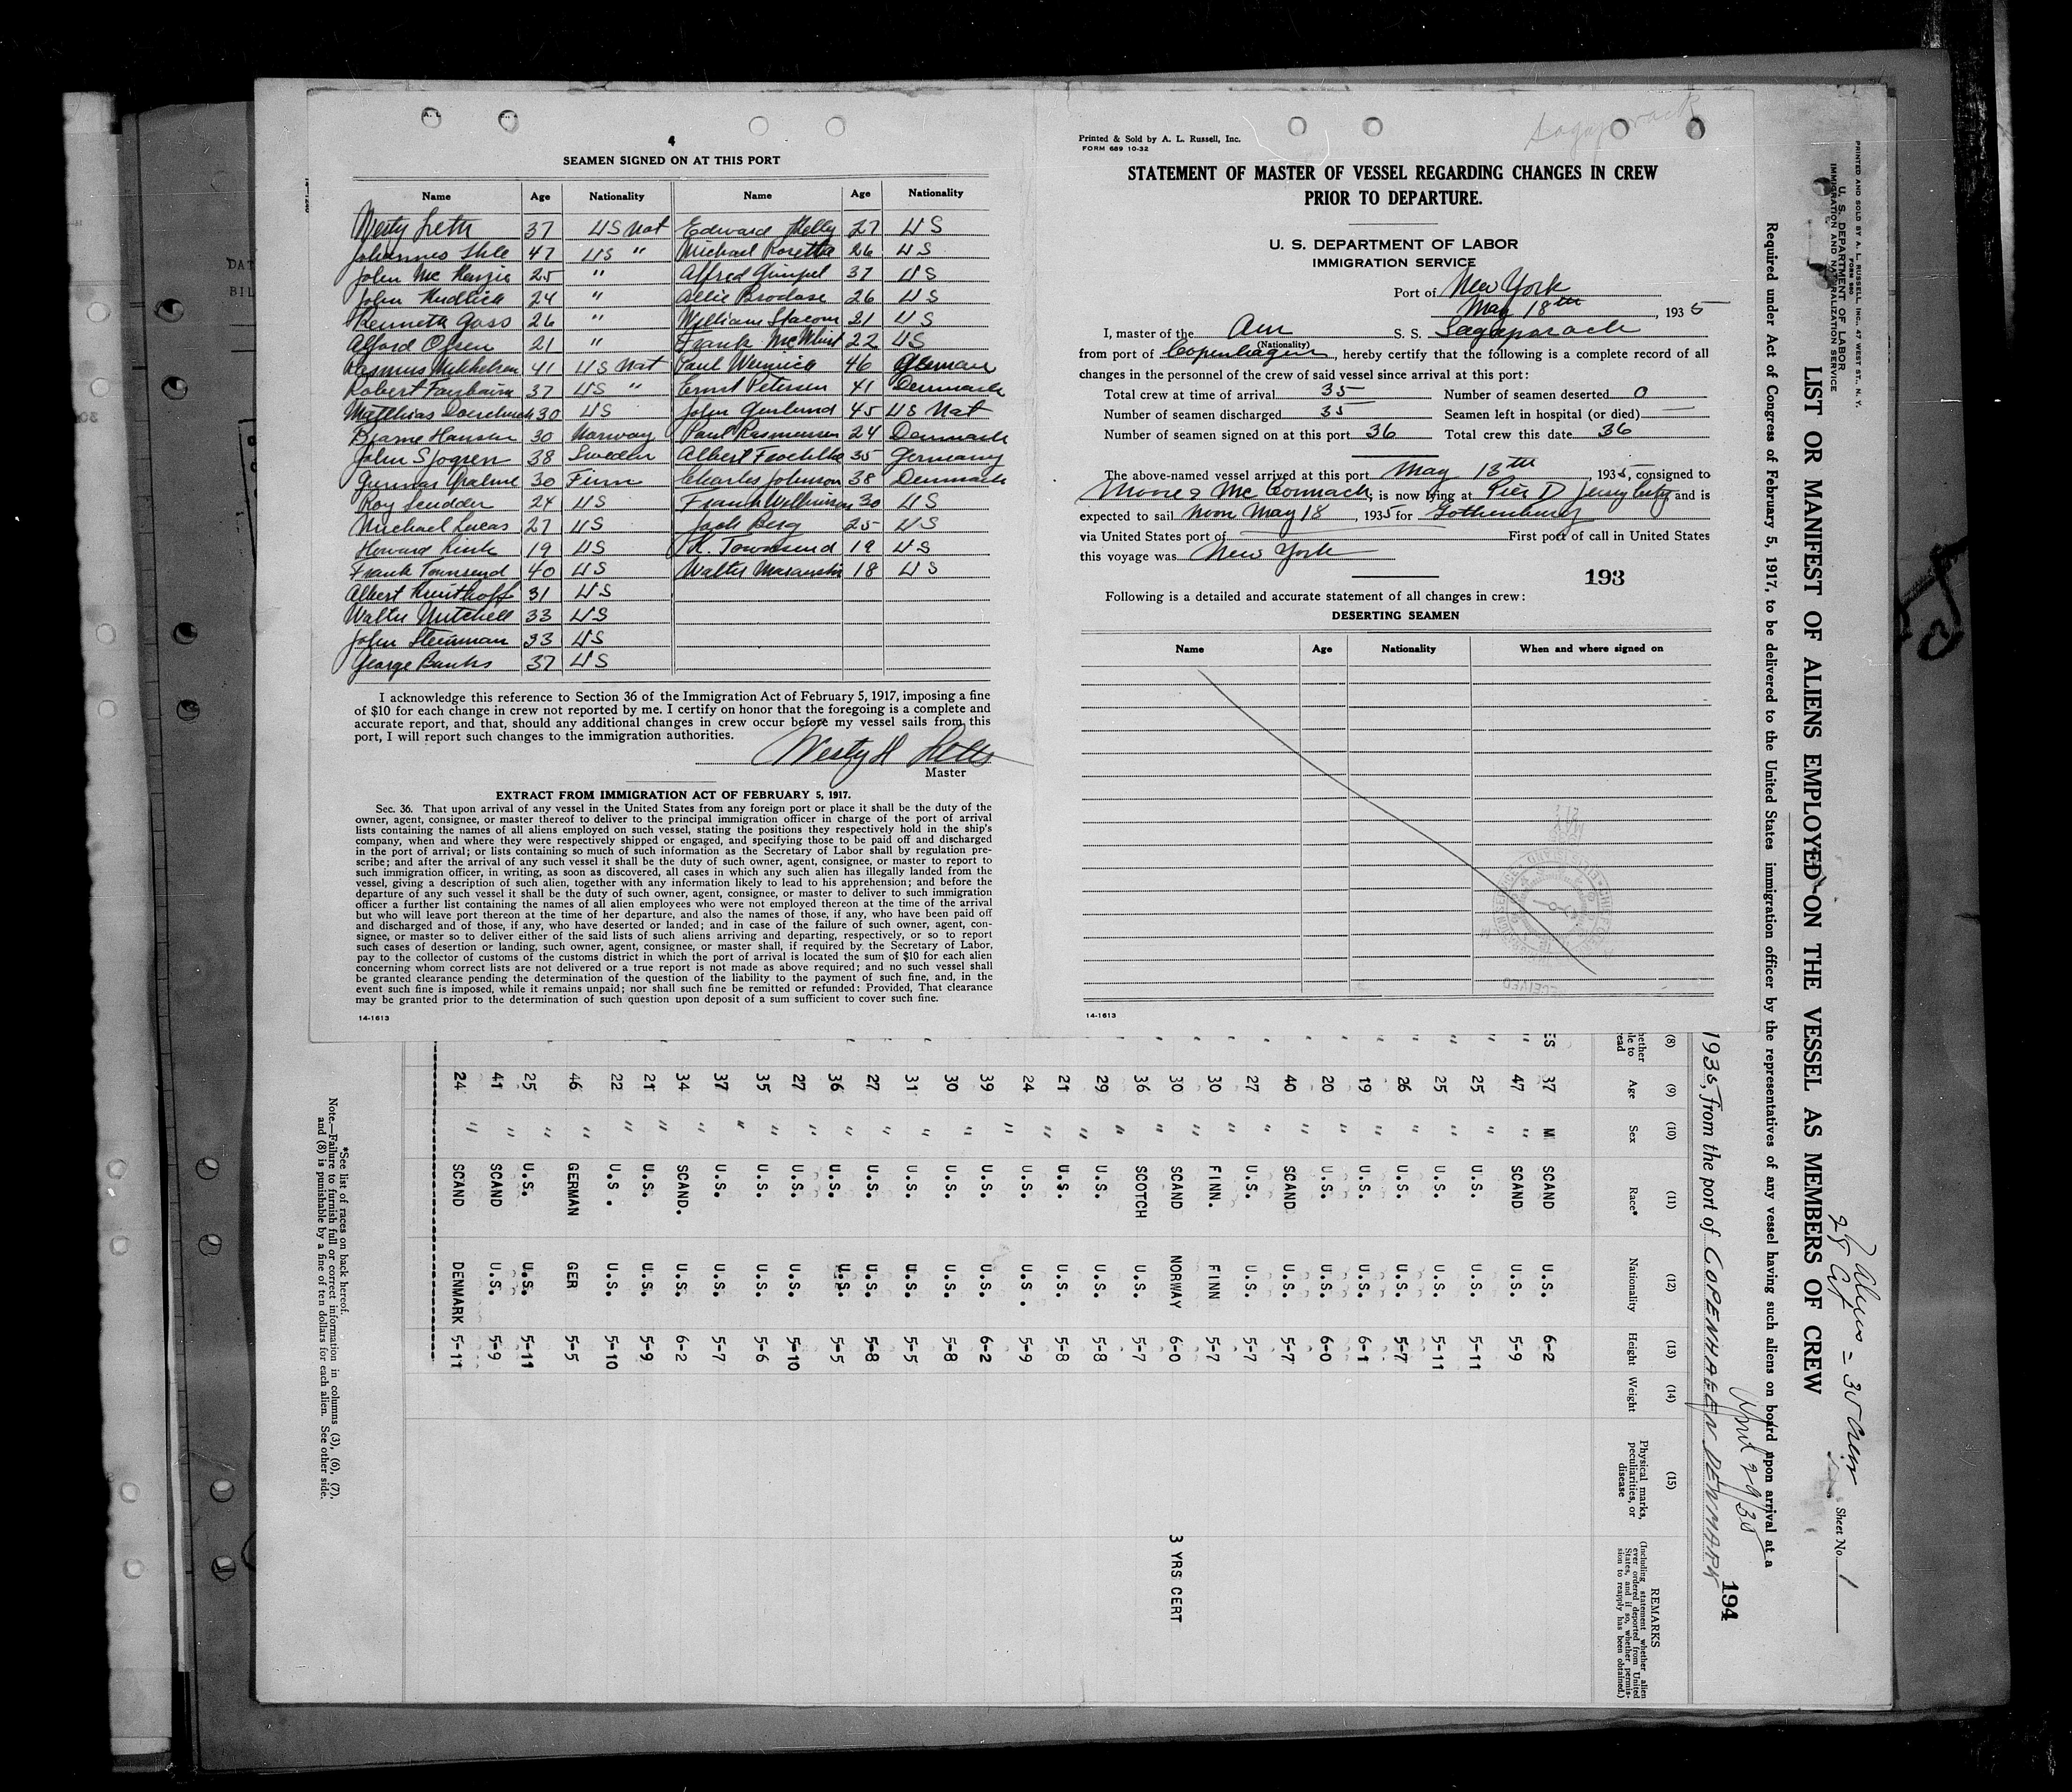 4
SEAMEN SIGNED ON AT THIS PORT
Name Age Nationality Name Age Nationality
Westy Leth 37 US Nat Edward Kelly 27 US
Johannes Ihle 47 US " Michael Rosetta 26 US
John Mc Kenzie 25 " Alfred Gimpel 37 US
John Hudlick 24 " Allie Brodase 26 US
Kenneth Goss 26 " William Stacom 21 US
Alford Olsen 21 " Frank McWhirt 22 US
Rasmus Mikkelsen 41 US Nat Paul Weinico 46 German
Robert Fairbairn 37 US " Ernst Petersen 41 Denmark
Matthias 30 US John Gerlund 45 US Nat
Bjarne Hansen 30 Norway Paul Rasmussen 24 Denmark
John Sjogren 38 Sweden Albert 35 Germany
Gunnar 30 Finn Charles Johnson 38 Denmark
Roy Scudder 24 US Frank Wilkinson 30 US
Michael Lucas 27 US Jack Berg 25 US
Howard Rink 19 US R. Townsend 19 US
Frank Townsend 40 US Walter 18 US
Albert Kruithoff 31 US
Walter Mitchell 33 US
John Steinman 33 US
George Banks 37 US
I acknowledge this reference to Section 36 of the Immigration Act of February 5, 1917, imposing a fine
of $10 for each change in crew not reported by me. I certify on honor that the foregoing is a complete and
accurate report, and that, should any additional changes in crew occur before my vessel sails from this
port, I will report such changes to the immigration authorities.
Westy H Leth
Master
EXTRACT FROM IMMIGRATION ACT OF FEBRUARY 5, 1917.
Sec. 36. That upon arrival of any vessel in the United States from any foreign port or place it shall be the duty of the
owner, agent, consignee, or master thereof to deliver to the principal immigration officer in charge of the port of arrival
lists containing the names of all aliens employed on such vessel, stating the positions they respectively hold in the ship's
company, when and where they were respectively shipped or engaged, and specifying those to be paid off and discharged
in the port of arrival; or lists containing so much of such information as the Secretary of Labor shall by regulation pre-
scribe; and after the arrival of any such vessel it shall be the duty of such owner, agent, consignee, or master to report to
such immigration officer, in writing, as soon as discovered, all cases in which any such alien has illegally landed from the
vessel, giving a description of such alien, together with any information likely to lead to his apprehension; and before the
departure of any such vessel it shall be the duty of such owner, agent, consignee, or master to deliver to such immigration
officer a further list containing the names of all alien employees who were not employed thereon at the time of the arrival
but who will leave port thereon at the time of her departure, and also the names of those, if any, who have been paid off
and discharged and of those, if any, who have deserted or landed; and in case of the failure of such owner, agent, con-
signee, or master so to deliver either of the said lists of such aliens arriving and departing, respectively, or so to report
such cases of desertion or landing, such owner, agent, consignee, or master shall, if required by the Secretary of Labor,
pay to the collector of customs of the customs district in which the port of arrival is located the sum of $10 for each alien
concerning whom correct lists are not delivered or a true report is not made as above required; and no such vessel shall
be granted clearance pending the determination of the question of the liability to the payment of such fine, and, in the
event such fine is imposed, while it remains unpaid; nor shall such fine be remitted or refunded: Provided, That clearance
may be granted prior to the determination of such question upon deposit of a sum sufficient to cover such fine.
14-1613
Sagaporack
Printed & Sold by A. L. Russell, Inc.
FORM 689 10-32
STATEMENT OF MASTER OF VESSEL REGARDING CHANGES IN CREW
PRIOR TO DEPARTURE.
U. S. DEPARTMENT OF LABOR
IMMIGRATION SERVICE
Port of New York
May 18th, 1935
I, master of the Am S. S. Sagaporack
(Nationality)
from port of Copenhagen, hereby certify that the following is a complete record of all
changes in the personnel of the crew of said vessel since arrival at this port:
Total crew at time of arrival 35 Number of seamen deserted 0
Number of seamen discharged 35 Seamen left in hospital (or died) —
Number of seamen signed on at this port 36 Total crew this date 36
The above-named vessel arrived at this port May 13th, 1935, consigned to
Moore & Mc Cormack, is now lying at Pier D Jersey City and is
expected to sail noon May 18, 1935 for Gothenburg
via United States port of First port of call in United States
this voyage was New York
193
Following is a detailed and accurate statement of all changes in crew:
DESERTING SEAMEN
Name Age Nationality When and where signed on
14-1613
PRINTED AND SOLD BY A. L. RUSSELL, INC., 47 WEST ST., N. Y.
FORM 680
U. S. DEPARTMENT OF LABOR
IMMIGRATION AND NATURALIZATION SERVICE
Sheet No. 1
LIST OR MANIFEST OF ALIENS EMPLOYED ON THE VESSEL AS MEMBERS OF CREW
Required under Act of Congress of February 5, 1917, to be delivered to the United States immigration officer by the representatives of any vessel having such aliens on board upon arrival at a
April 29/35
194
1935, from the port of COPENHAGEN DENMARK
(8) (9) (10) (11) (12) (13) (14) (15)
Age Sex Race* Nationality Height Weight Physical marks, peculiarities, or disease REMARKS
(Including statement whether alien ever ordered deported from United States, and if so, whether permission to reapply has been obtained.)
ES 37 M SCAND U.S. 6-2
" 47 " SCAND U.S. 5-9
" 25 " U.S. U.S. 5-11
" 25 " U.S. U.S. 5-11
" 26 " U.S. U.S. 5-7
" 19 " U.S. U.S. 6-1
" 20 " U.S. U.S. 6-0
" 40 " SCAND U.S. 5-7
" 27 " U.S. U.S. 5-7
" 30 " FINN. FINN 5-7
" 30 " SCAND NORWAY 6-0 3 YRS CERT
" 36 " SCOTCH U.S. 5-7
" 29 " U.S. U.S. 5-8
" 21 " U.S. U.S. 5-8
" 24 " U.S. U.S. 5-9
" 39 " U.S. U.S. 6-2
" 30 " U.S. U.S. 5-8
" 31 " U.S. U.S. 5-5
" 27 " U.S. U.S. 5-8
" 36 " U.S. U.S. 5-5
" 27 " U.S. U.S. 5-10
" 35 " U.S. U.S. 5-6
" 37 " U.S. U.S. 5-7
" 34 " SCAND. U.S. 6-2
" 21 " U.S. U.S. 5-9
" 22 " U.S. U.S. 5-10
" 46 " GERMAN GER 5-5
" 25 " U.S. U.S. 5-11
" 41 " SCAND U.S. 5-9
" 24 " SCAND DENMARK 5-11
*See list of races on back hereof.
Note.—Failure to furnish full or correct information in columns (3), (6), (7),
and (8) is punishable by a fine of ten dollars for each alien. See other side.